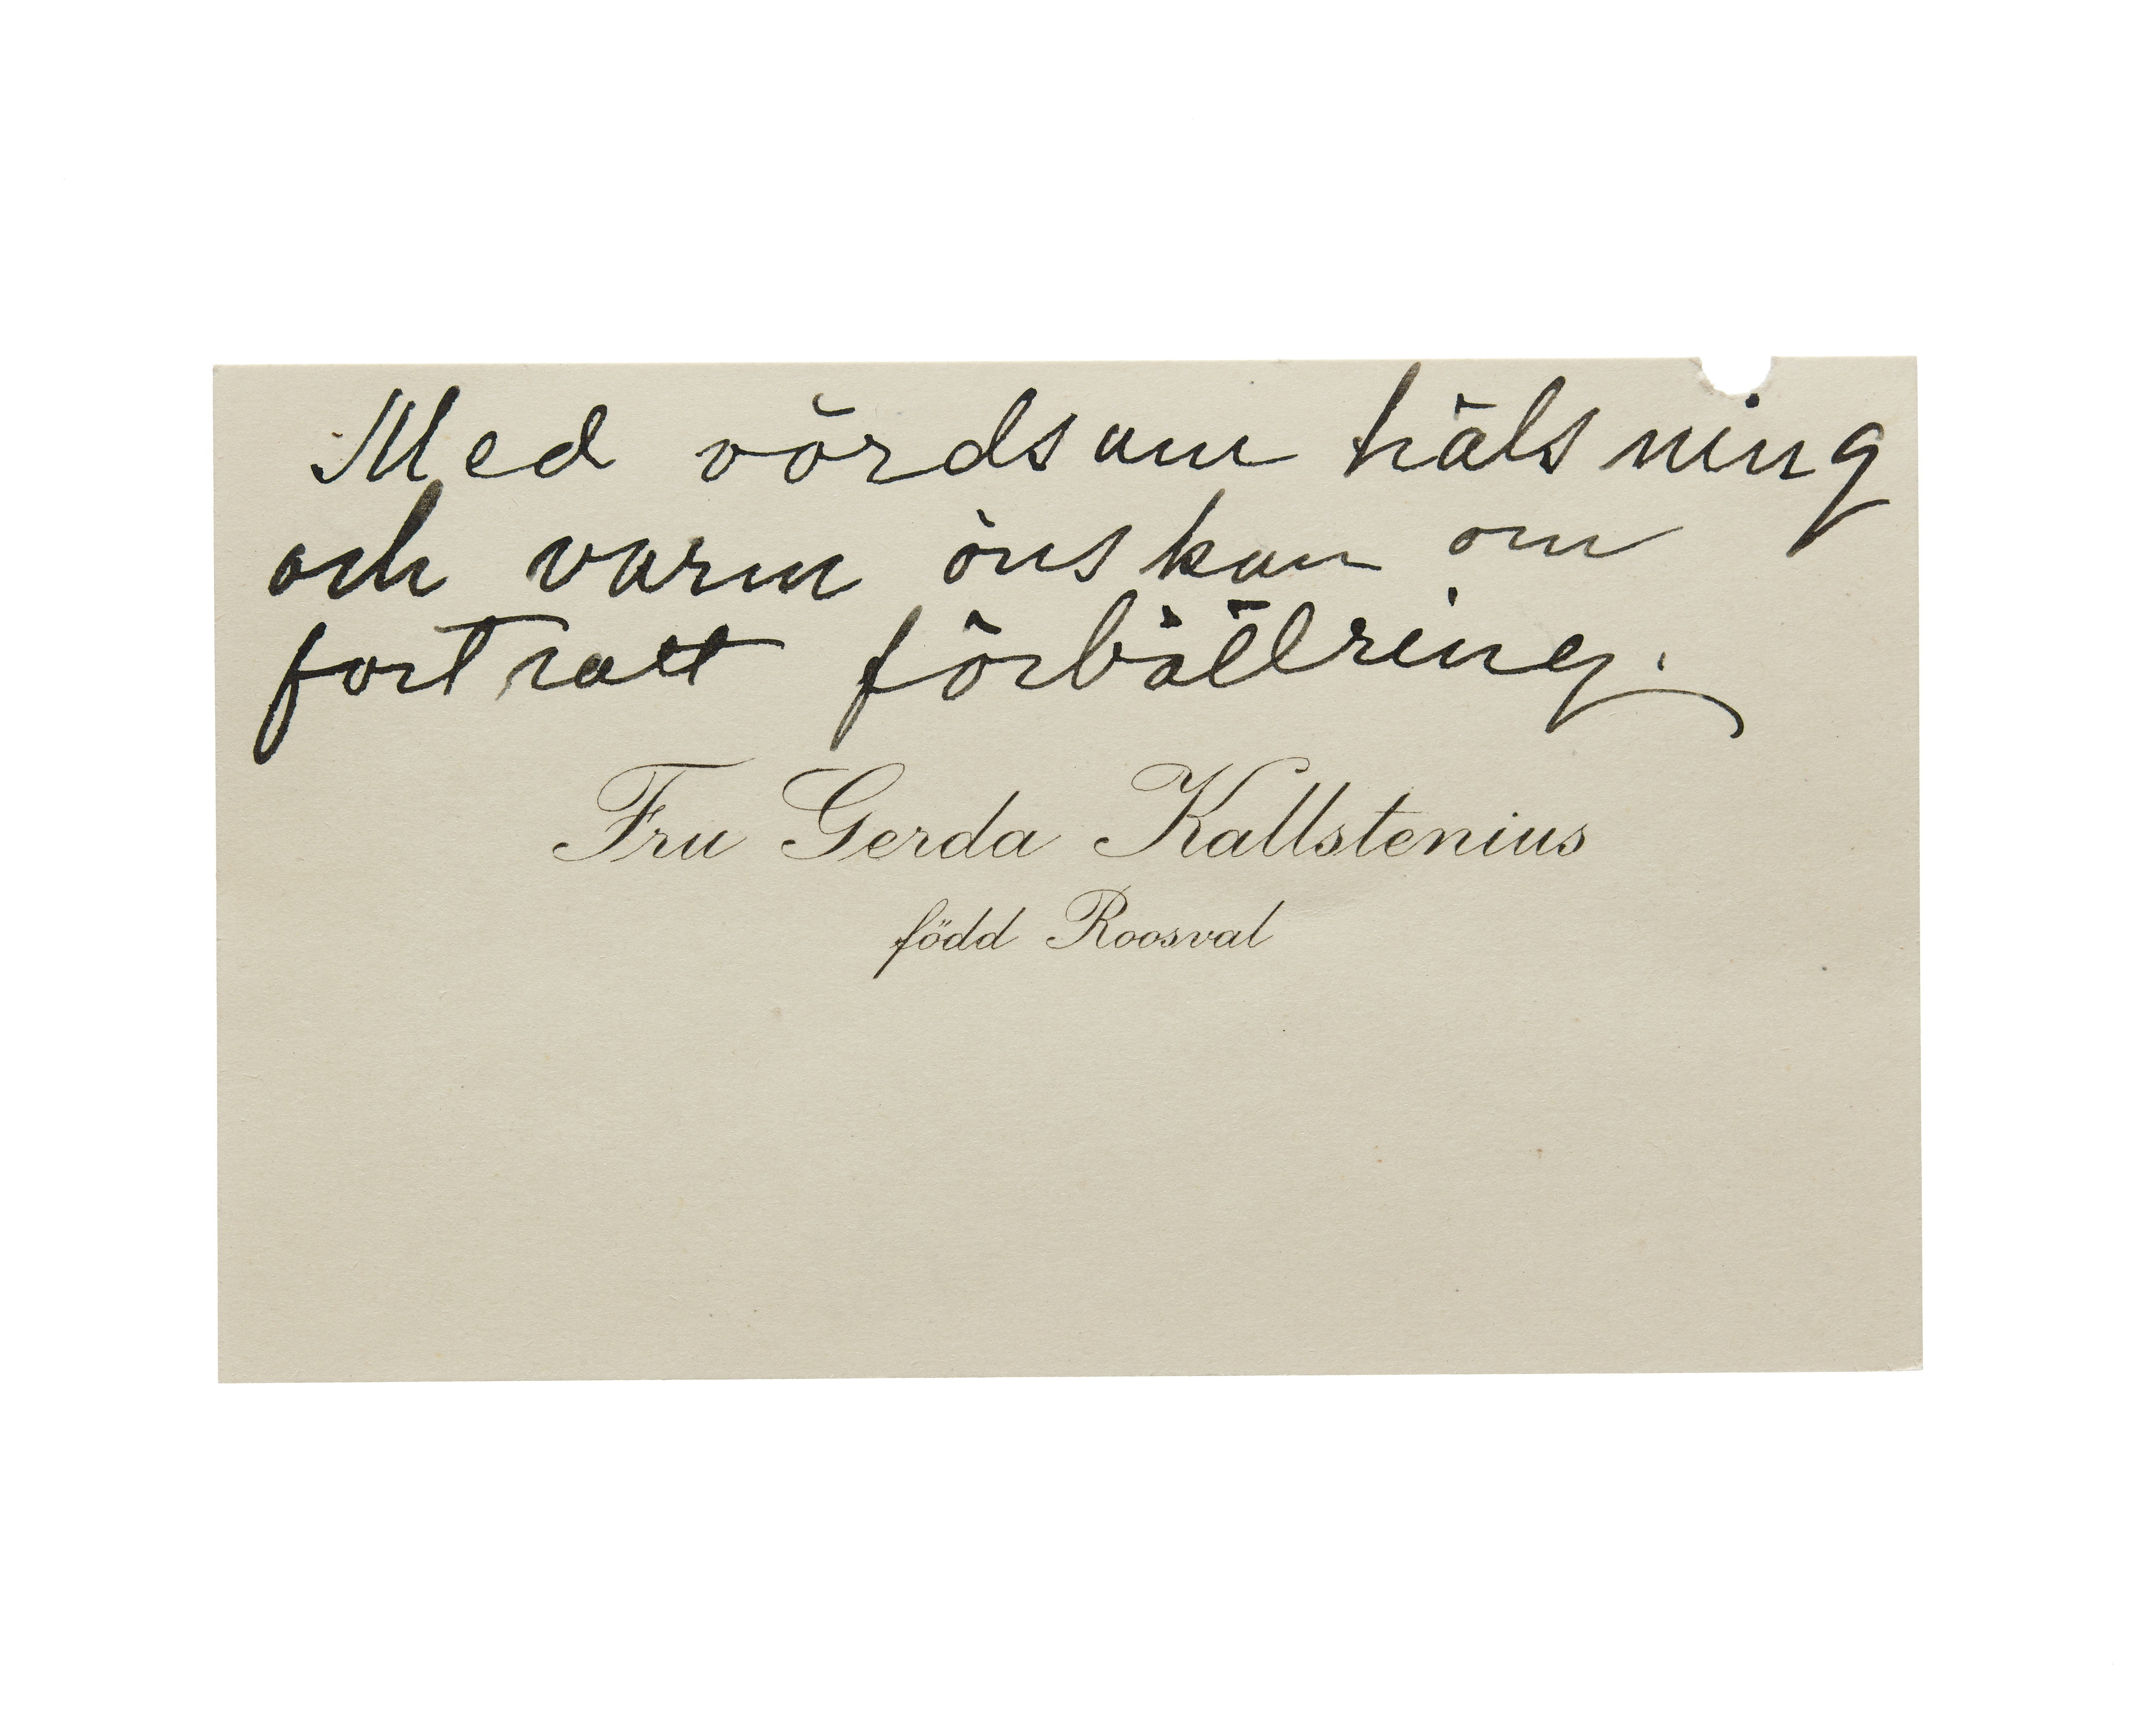 Med vördsam hälsning
och varm önskan om
fortsatt förbättring.
Fru Gerda Kallstenius
född Roosval